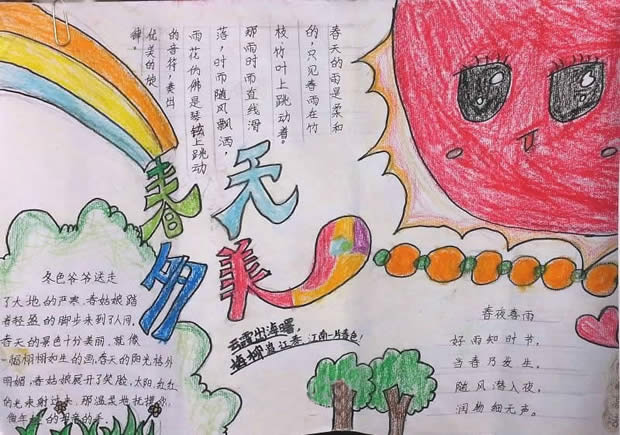 春天的雨是柔和
的，只见春雨在竹
枝竹叶上跳动着。
那雨时而直线滑
落，时而随风飘洒，
雨花仿佛是琴弦上跳动
的音符，奏出
优美的旋
律。
春天
多美
冬色爷爷送走
了大地的严寒，春姑娘踏
着轻盈的脚步来到了人间，
春天的景色十分美丽，就像
一幅栩栩如生的画，春天的阳光格外
明媚，春姑娘展开了笑脸，太阳，红红
的光束射过来，那温柔地抚摸你，
像年轻的母亲的手。
云霞出海曙，
梅柳渡江春。江南一片春色！
春夜春雨
好雨知时节，
当春乃发生，
随风潜入夜，
润物细无声。